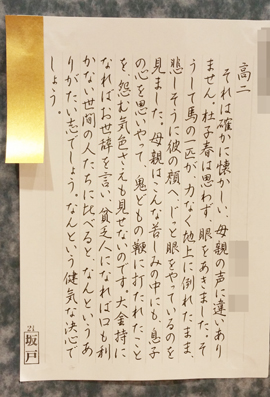 高二
それは確かに懐かしい、母親の声に違いあり
ません。杜子春は思わず、眼をあきました。そ
うして馬の一匹が、力なく地上に倒れたまま、
悲しそうに彼の顔へ、じっと眼をやっているのを
見ました。母親はこんな苦しみの中にも、息子
の心を思いやって、鬼どもの鞭に打たれたこと
を、怨む気色さえも見せないのです。大金持に
なればお世辞を言い、貧乏人になれば口も利
かない世間の人たちに比べると、なんというあ
りがたい志でしょう。なんという健気な決心で
しょう。
21
坂戸